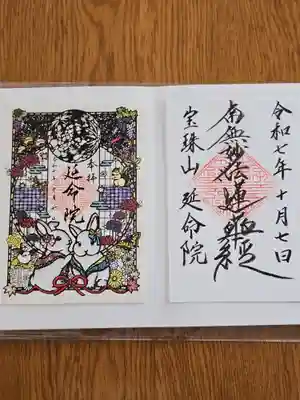 令和七年十月七日
南無妙法蓮華経
宝珠山 延命院
奉拝
延命院